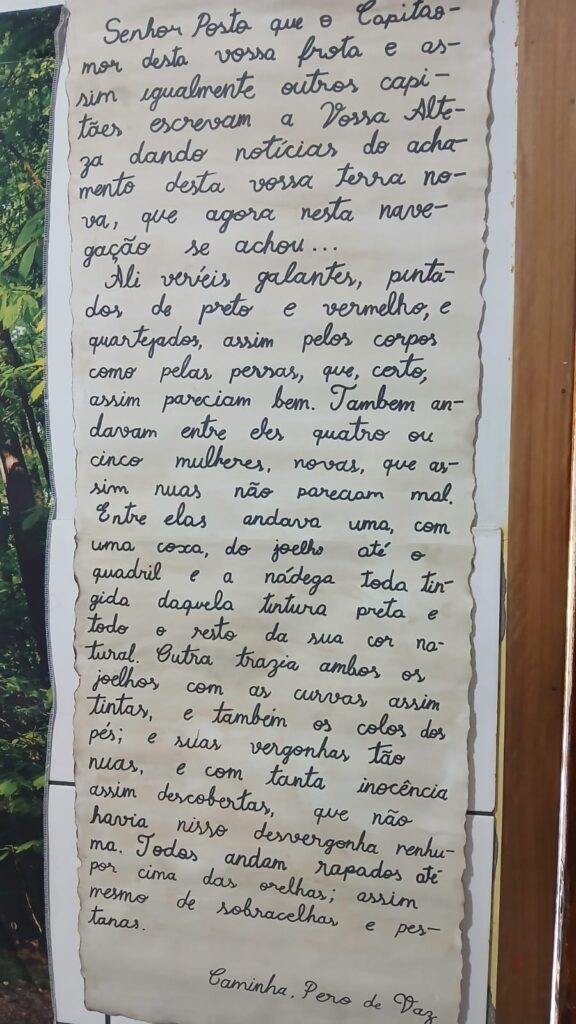 Senhor Posto que o Capitao-
mor desta vossa frota e as-
sim igualmente outros capi-
tães escrevam a Vossa Alte-
za dando notícias do acha-
mento desta vossa terra no-
va, que agora nesta nave-
gação se achou...
Ali veríeis galantes, pinta-
dos de preto e vermelho, e
quartejados, assim pelos corpos
como pelas pernas, que, certo,
assim pareciam bem. Tambem an-
davam entre eles quatro ou
cinco mulheres, novas, que as-
sim nuas não pareciam mal.
Entre elas andava uma, com
uma coxa, do joelho até o
quadril e a nádega toda tin-
gida daquela tintura preta e
todo o resto da sua cor na-
tural. Outra trazia ambos os
joelhos com as curvas assim
tintas, e também os colos dos
pés; e suas vergonhas tão
nuas, e com tanta inocência
assim descobertas, que não
havia nisso desvergonha nenhu-
ma. Todos andam rapados até
por cima das orelhas; assim
mesmo de sobracelhas e pes-
tanas.
Caminha, Pero de Vaz